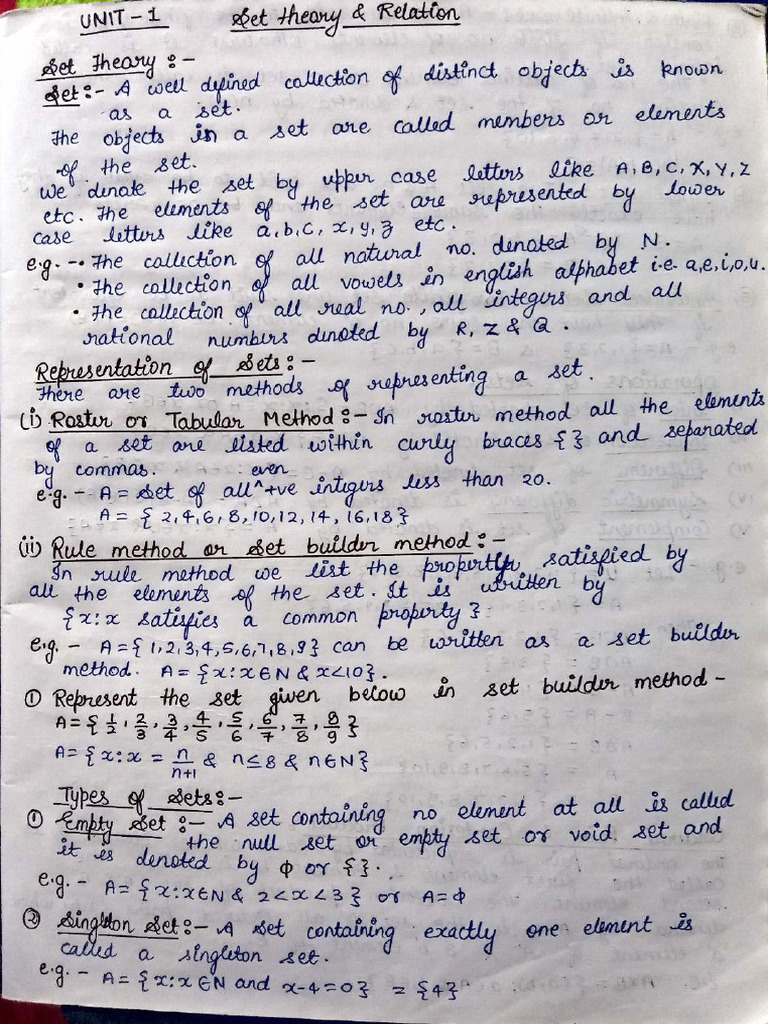 UNIT - 1 Set theory & Relation
Set Theory :-
Set :- A well defined collection of distinct objects is known
as a set.
The objects in a set are called members or elements
of the set.
We denote the set by upper case letters like A, B, C, X, Y, Z
etc. The elements of the set are represented by lower
case letters like a, b, c, x, y, z etc.
e.g. - • The collection of all natural no. denoted by N.
• The collection of all vowels in english alphabet i.e a, e, i, o, u.
• The collection of all real no., all integers and all
rational numbers denoted by R, Z & Q.
Representation of Sets :-
There are two methods of representing a set.
(i) Roster or Tabular Method :- In roster method all the elements
of a set are listed within curly braces { } and separated
by commas.
e.g. - A = Set of all ^even +ve integers less than 20.
A = { 2, 4, 6, 8, 10, 12, 14, 16, 18 }
(ii) Rule method or Set builder method :-
In rule method we list the property satisfied by
all the elements of the set. It is written by
{ x : x satisfies a common property }
e.g. - A = { 1, 2, 3, 4, 5, 6, 7, 8, 9 } can be written as a set builder
method. A = { x : x ∈ N & x < 10 }.
① Represent the set given below in set builder method -
A = { 1/2, 2/3, 3/4, 4/5, 5/6, 6/7, 7/8, 8/9 }
A = { x : x = n/n+1 & n ≤ 8 & n ∈ N }
Types of Sets :-
① Empty Set :- A set containing no element at all is called
the null set or empty set or void set and
it is denoted by ϕ or { }.
e.g. - A = { x : x ∈ N & 2 < x < 3 } or A = ϕ
② Singleton Set :- A set containing exactly one element is
called a singleton set.
e.g. - A = { x : x ∈ N and x - 4 = 0 } = { 4 }